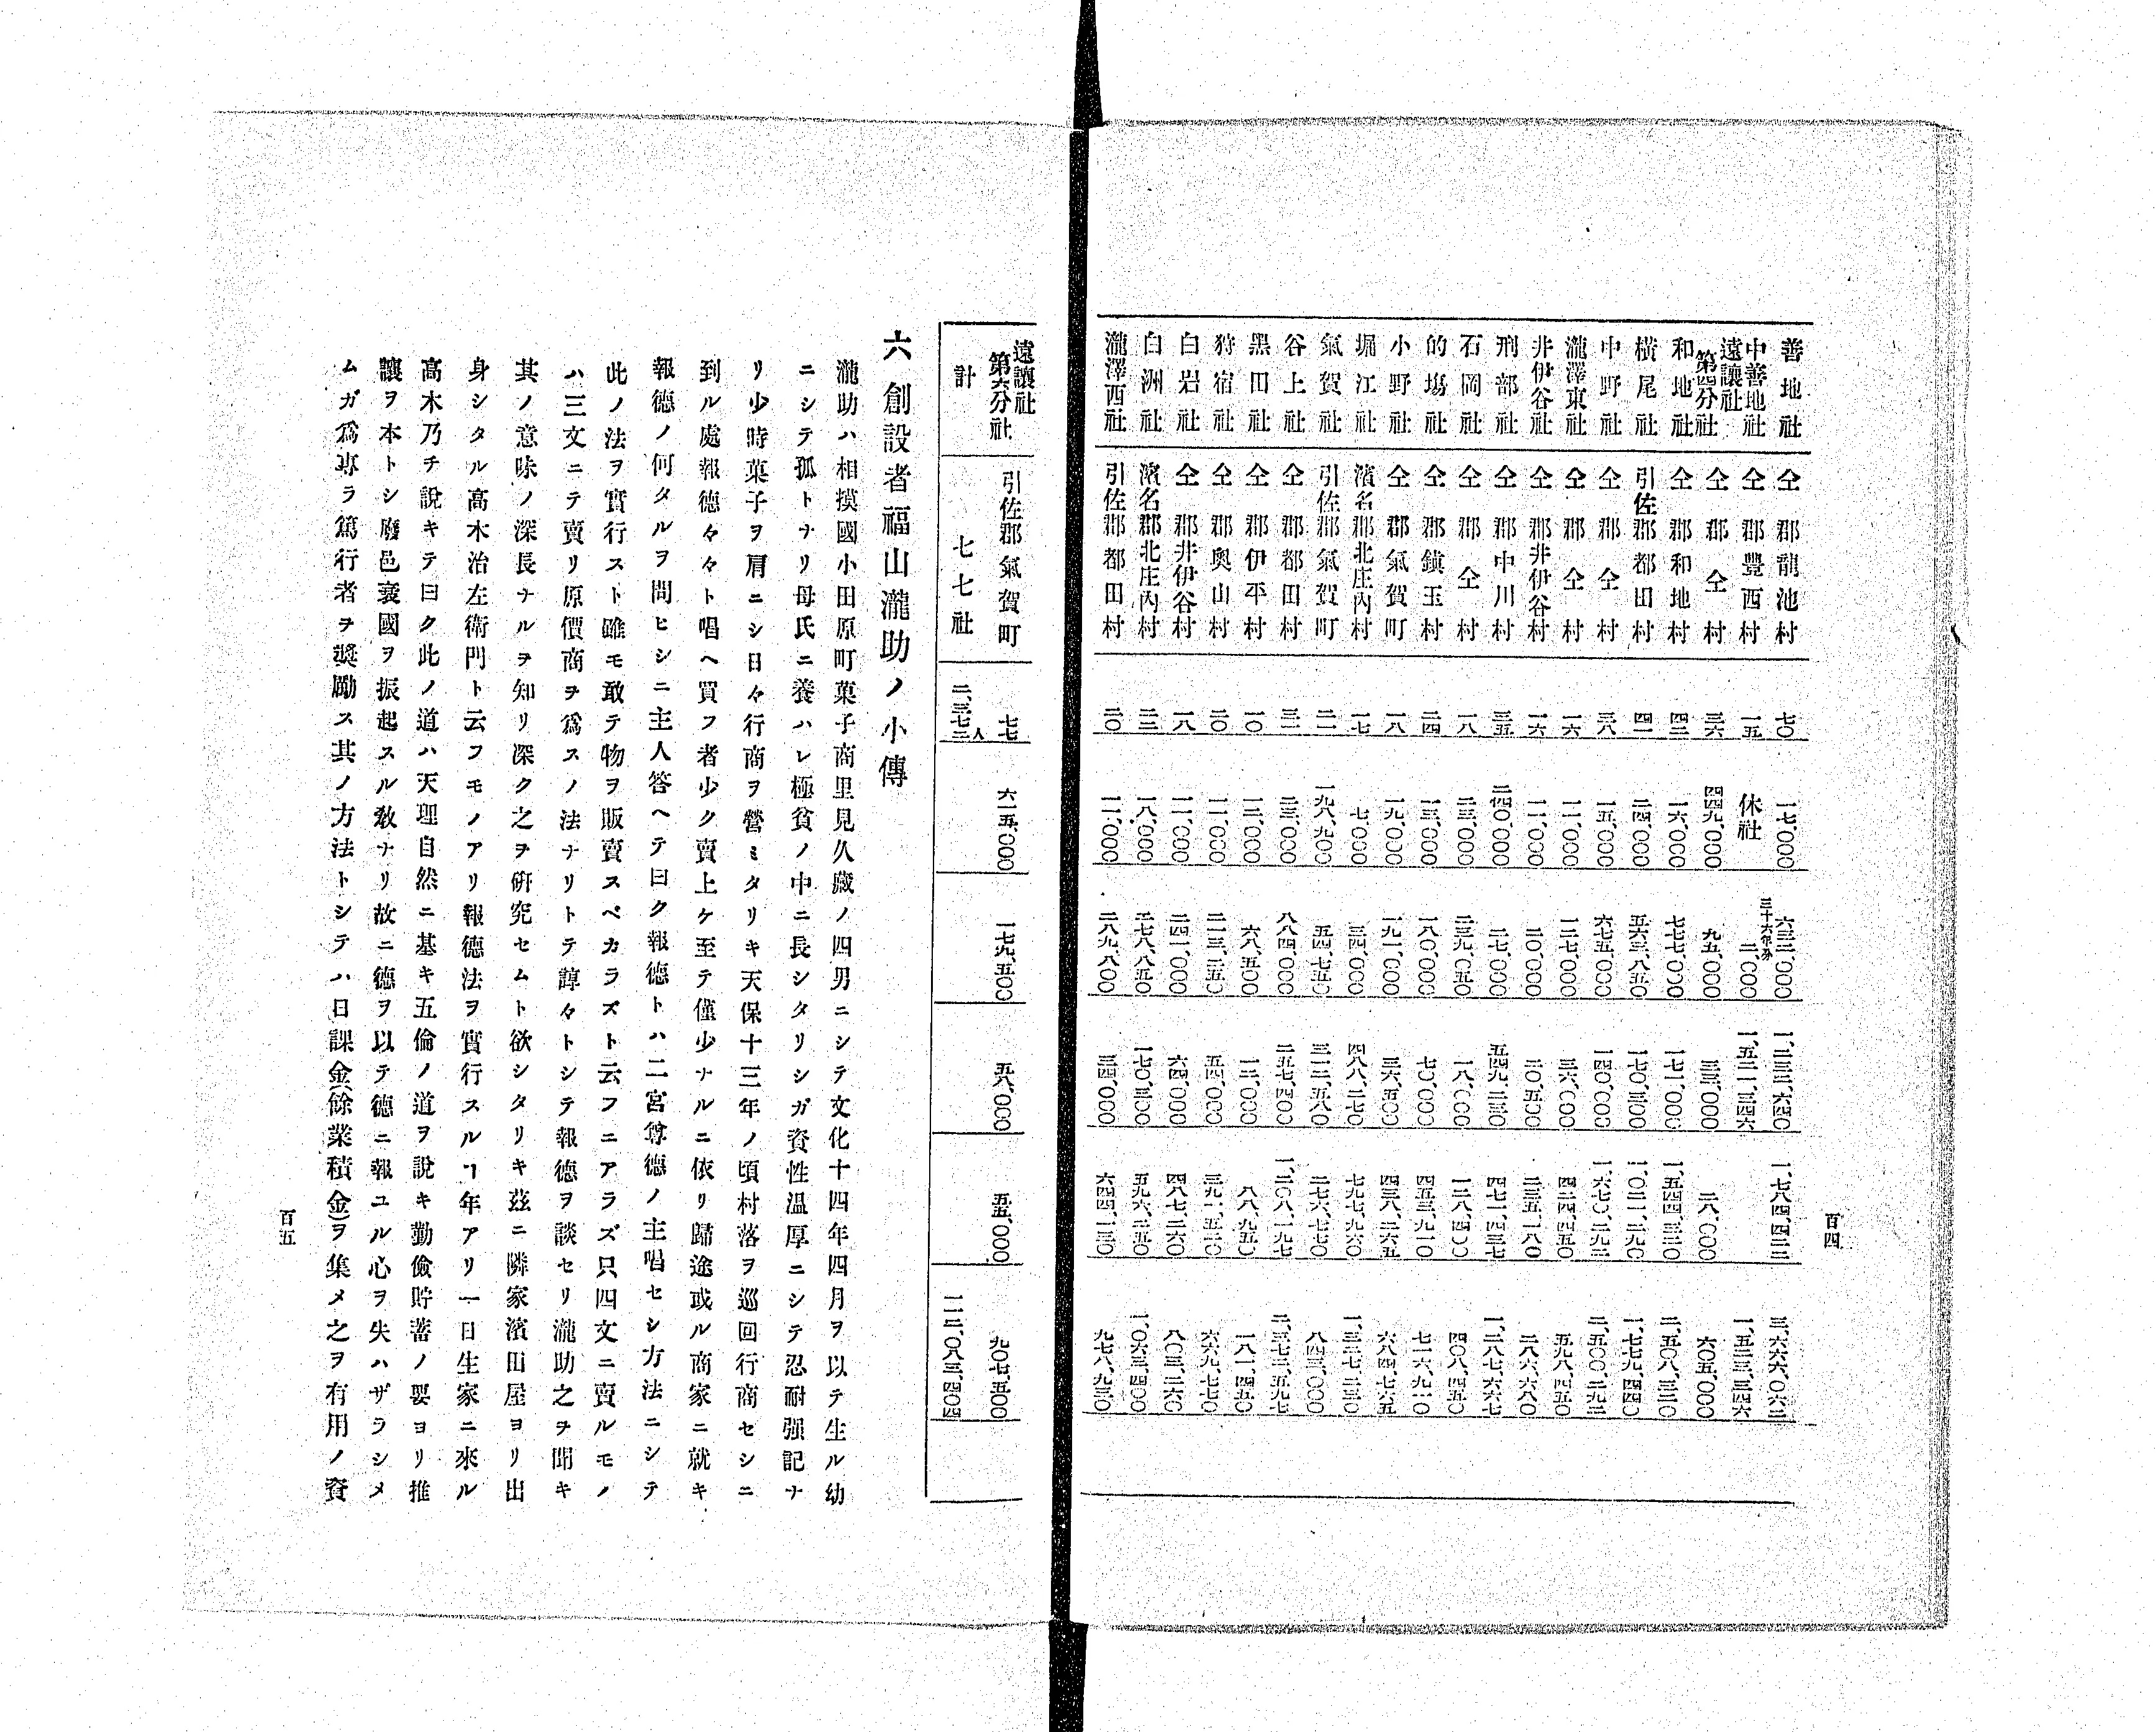 善地社 仝郡龍池村 七〇 一七、〇〇〇 六三二、〇〇〇 一、二三三、六四〇 一、七八四、四二三 三、六六六、〇六三
中善地社 仝郡豐西村 一五 休社 三十六年分 二、〇〇〇 一、五二一、三四六 一、五二三、三四六
遠讓社第四分社 仝郡仝村 三六 四四九、〇〇〇 九五、〇〇〇 三三、〇〇〇 二八、〇〇〇 六〇五、〇〇〇
和地社 仝郡和地村 四三 一六、〇〇〇 七七七、〇〇〇 一七一、〇〇〇 一、五四四、三二〇 二、五〇八、三二〇
橫尾社 引佐郡都田村 四一 二四、〇〇〇 五六三、八五〇 一七〇、三〇〇 一、〇二一、二九〇 一、七七九、四四〇
中野社 仝郡仝村 三八 一五、〇〇〇 六七五、〇〇〇 一四〇、〇〇〇 一、六七〇、二九三 二、五〇〇、二九三
瀧澤東社 仝郡仝村 一六 一一、〇〇〇 一二七、〇〇〇 三六、〇〇〇 四二四、四五〇 五九八、四五〇
井伊谷社 仝郡井伊谷村 一六 一一、〇〇〇 二〇、〇〇〇 二〇、五〇〇 二三五、一八〇 二八六、六八〇
刑部社 仝郡中川村 三五 二四〇、〇〇〇 二七、〇〇〇 五四九、二三〇 四七一、四三七 一、二八七、六六七
石岡社 仝郡仝村 一八 二三、〇〇〇 二三九、〇五〇 一八、〇〇〇 一二八、四〇〇 四〇八、四五〇
的塲社 仝郡鎭玉村 二四 一三、〇〇〇 一八〇、〇〇〇 七〇、〇〇〇 四五三、九一〇 七一六、九一〇
小野社 仝郡氣賀町 一八 一九、〇〇〇 一九一、〇〇〇 三六、五〇〇 四三八、二六五 六八四、七六五
堀江社 濱名郡北庄內村 一七 七、〇〇〇 三四、〇〇〇 四八八、二七〇 七九七、九六〇 一、三二七、二三〇
氣賀社 引佐郡氣賀町 二二 一九八、九〇〇 五四、七五〇 三一二、五八〇 二七六、七七〇 八四三、〇〇〇
谷上社 仝郡都田村 三二 二三、〇〇〇 八八四、〇〇〇 二五七、四〇〇 一、二〇八、一九七 二、三七二、五九七
黑田社 仝郡伊平村 一〇 一三、〇〇〇 六八、五〇〇 一二、〇〇〇 八八、九五〇 一八一、四五〇
狩宿社 仝郡奧山村 二〇 一一、〇〇〇 二一三、二五〇 五四、〇〇〇 三九一、五二〇 六六九、七七〇
白岩社 仝郡井伊谷村 一八 一一、〇〇〇 二四一、〇〇〇 六四、〇〇〇 四八七、二六〇 八〇三、二六〇
白洲社 濱名郡北庄內村 二三 一八、〇〇〇 二七八、八五〇 一七〇、三〇〇 五九六、二五〇 一、〇六三、四〇〇
瀧澤西社 引佐郡都田村 二〇 一一、〇〇〇 二八九、八〇〇 三四、〇〇〇 六四四、一三〇 九七八、九三〇
百四
遠讓社第六分社 引佐郡氣賀町 七七 六一五、〇〇〇 一七九、五〇〇 五八、〇〇〇 五五、〇〇〇 九〇七、五〇〇
計 七七社 二、三七二人 一一二、〇八三、四〇四
六 創設者福山瀧助ノ小傳
瀧助ハ相摸國小田原町菓子商里見久藏ノ四男ニシテ文化十四年四月ヲ以テ生ル幼
ニシテ孤トナリ母氏ニ養ハレ極貧ノ中ニ長シタリシガ資性温厚ニシテ忍耐强記ナ
リ少時菓子ヲ肩ニシ日々行商ヲ營ミタリキ天保十三年ノ頃村落ヲ巡回行商セシニ
到ル處報德々々ト唱ヘ買フ者少ク賣上ケ至テ僅少ナルニ依リ歸途或ル商家ニ就キ
報德ノ何タルヲ問ヒシニ主人答ヘテ曰ク報德トハ二宮尊德ノ主唱セシ方法ニシテ
此ノ法ヲ實行スト雖モ敢テ物ヲ販賣スベカラズト云フニアラズ只四文ニ賣ルモノ
ハ三文ニテ賣リ原價商ヲ爲スノ法ナリトテ諄々トシテ報德ヲ談セリ瀧助之ヲ聞キ
其ノ意味ノ深長ナルヲ知リ深ク之ヲ硏究セムト欲シタリキ茲ニ隣家濱田屋ヨリ出
身シタル高木治左衛門ト云フモノアリ報德法ヲ實行スルヿ年アリ一日生家ニ來ル
高木乃チ說キテ曰ク此ノ道ハ天理自然ニ基キ五倫ノ道ヲ說キ勤儉貯蓄ノ要ヨリ推
讓ヲ本トシ廢邑衰國ヲ振起スル敎ナリ故ニ德ヲ以テ德ニ報ユル心ヲ失ハザラシメ
ムガ爲專ラ篤行者ヲ奬勵ス其ノ方法トシテハ日課金(餘業積金)ヲ集メ之ヲ有用ノ資
百五